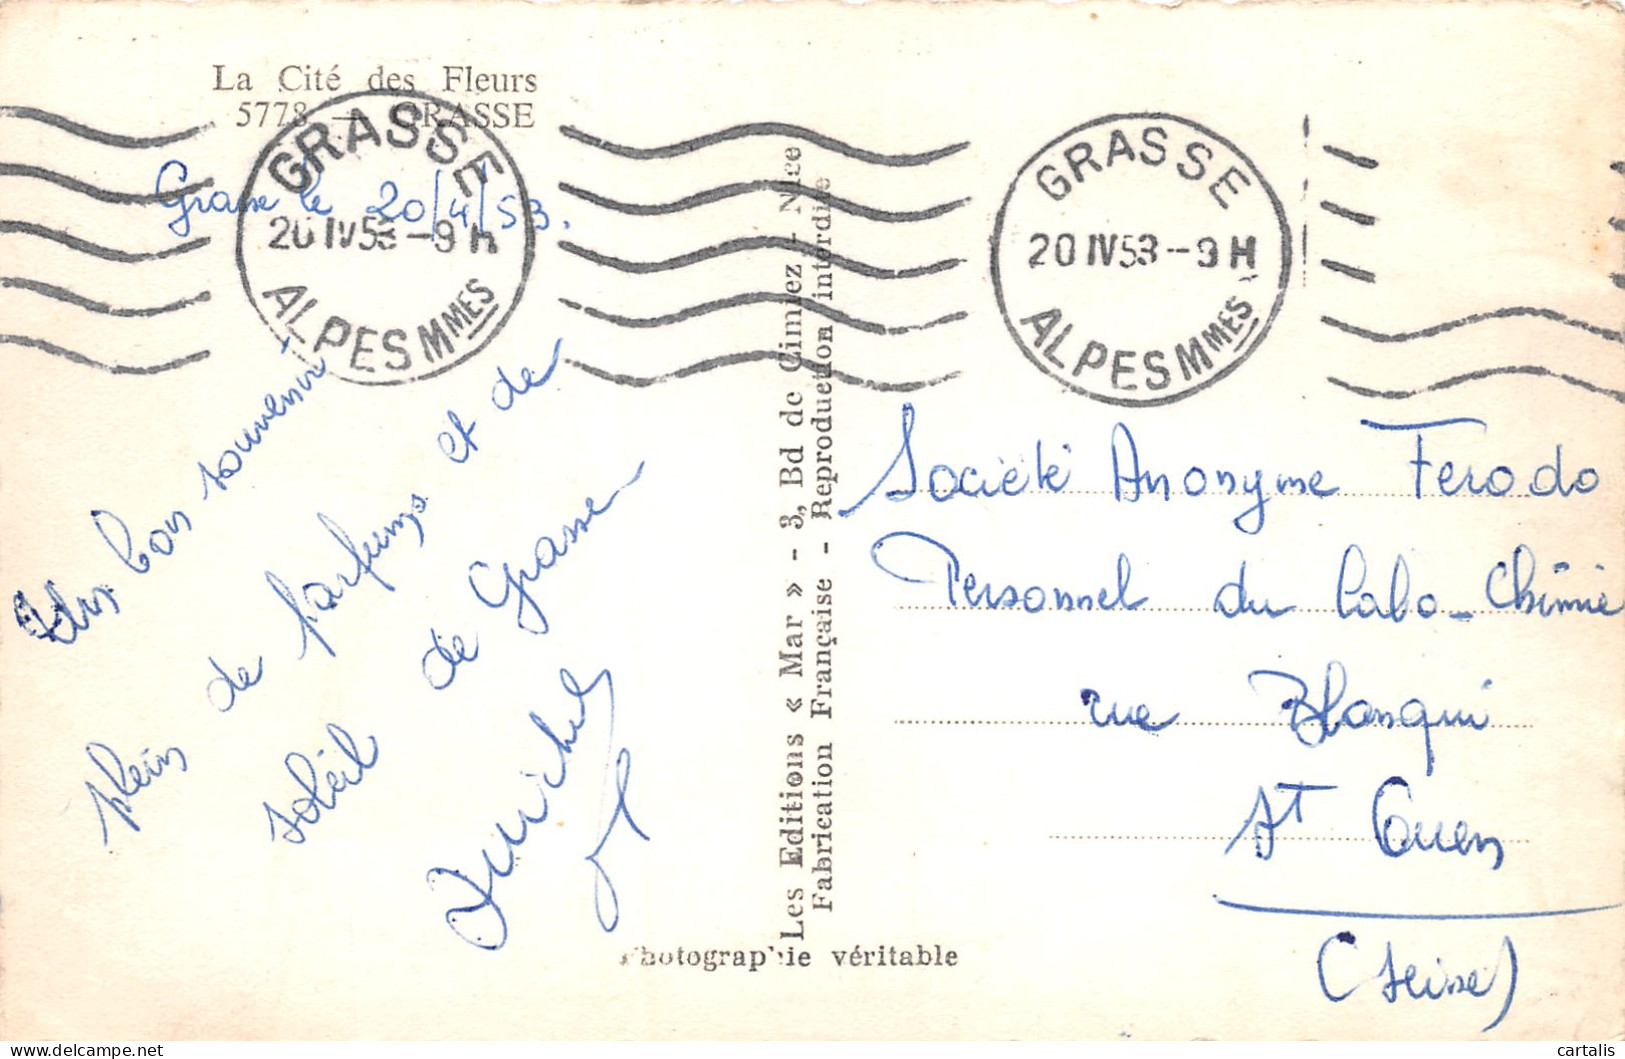 La Cité des Fleurs
5778 — GRASSE
GRASSE
20 IV 53 - 9 H
ALPES Mmes
Grasse le 20/4/53.
Un bon souvenir
plein de parfums et de
soleil de Grasse
Michel
Les Editions « Mar » - 3, Bd de Cimiez - Nice
Fabrication Française - Reproduction interdite
Photographie véritable
GRASSE
20 IV 53 - 9 H
ALPES Mmes
Société Anonyme Ferodo
Personnel du Labo-Chimie
rue Blanqui
St Ouen
(Seine)
cartalis